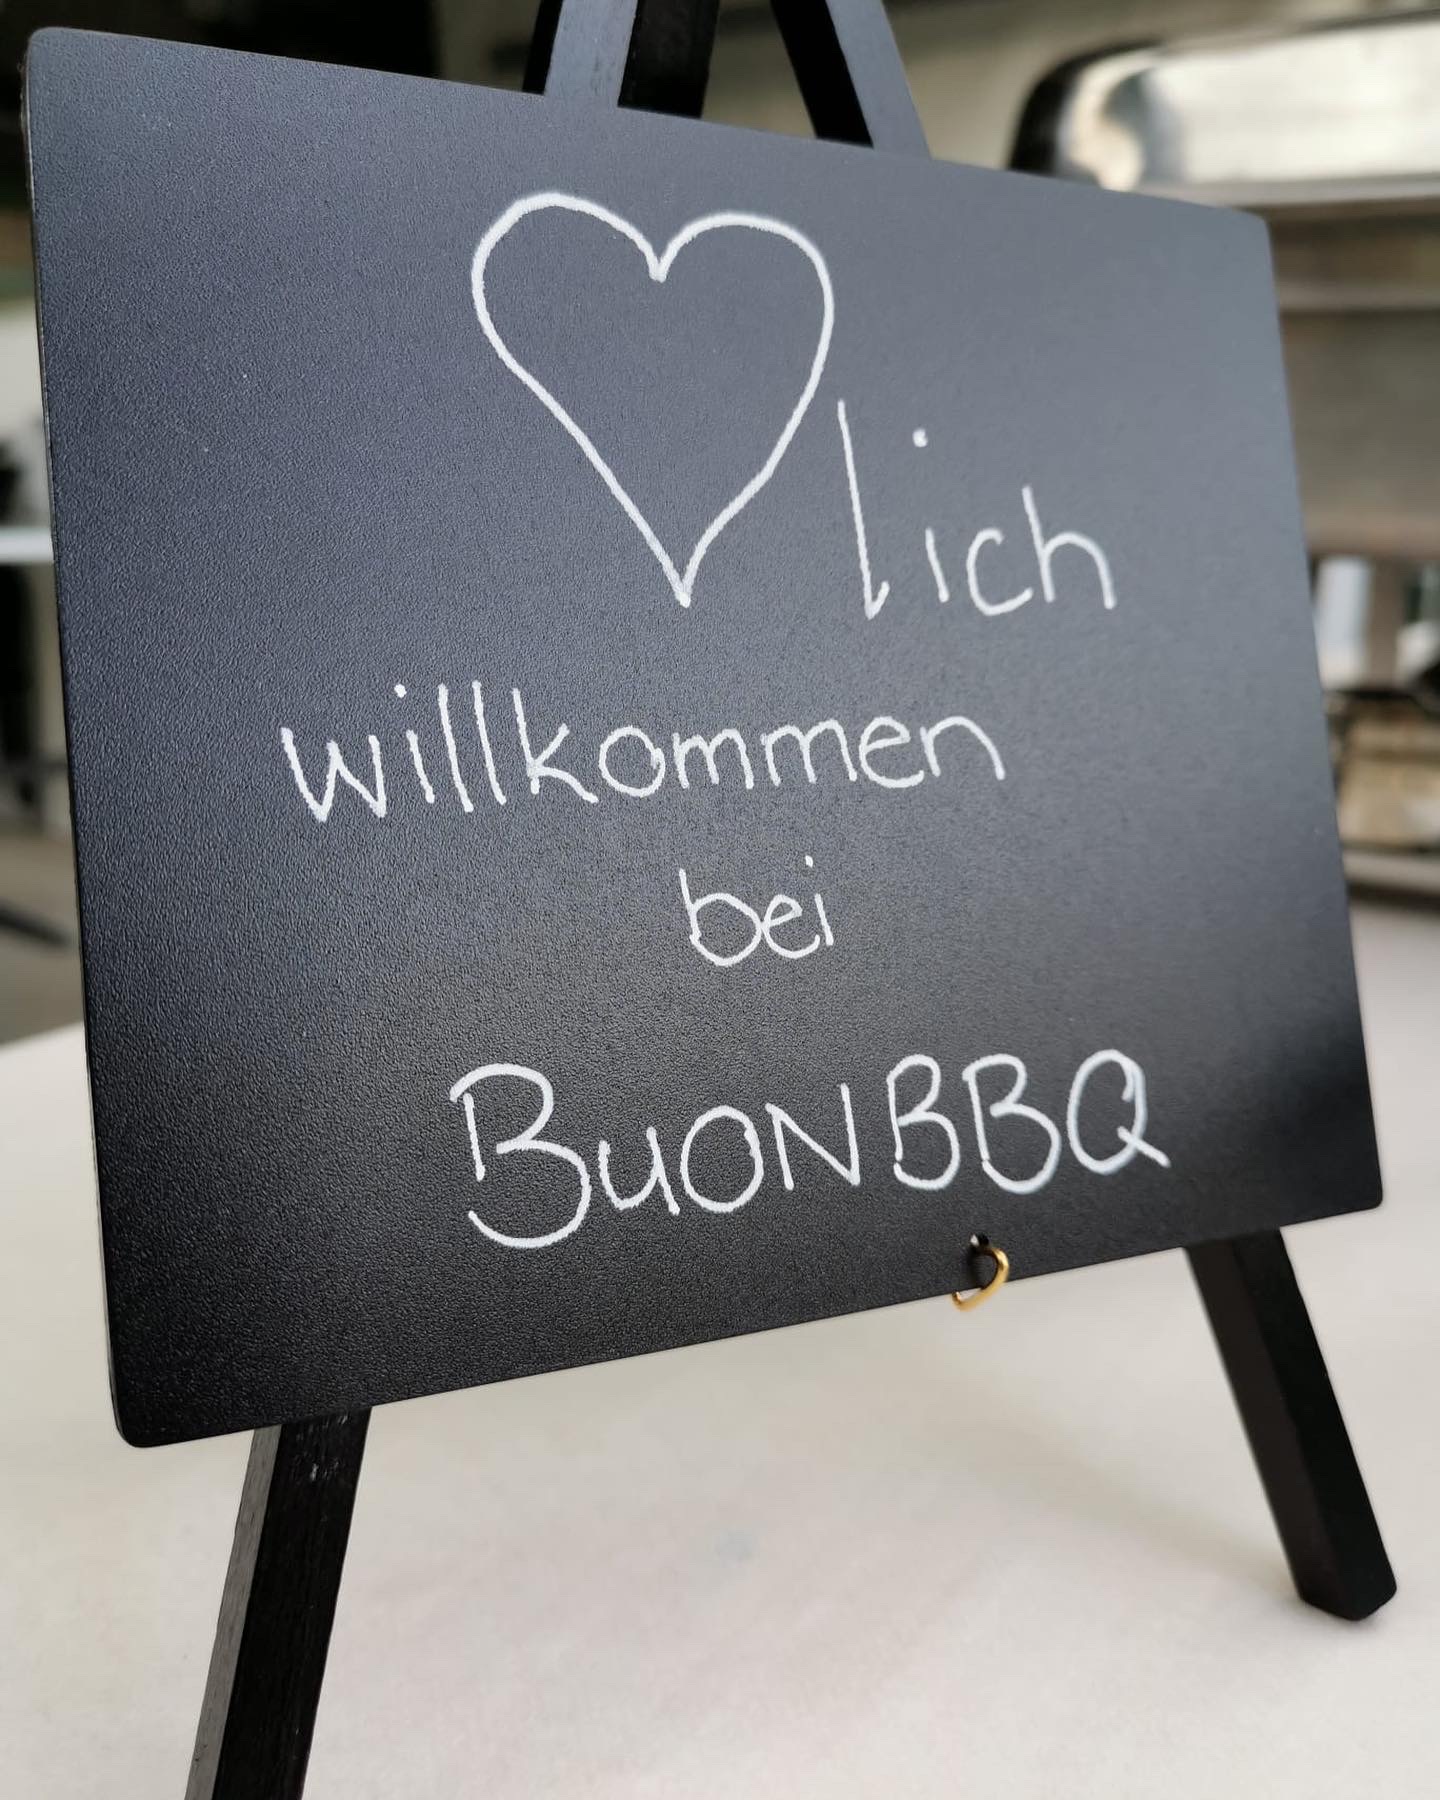 ♡lich
willkommen
bei
BuonBBQ